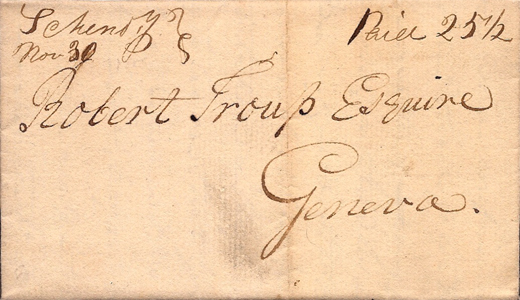 Schenʸ Paid 25½
Nov 30
Robert Troup Esquire
Geneva.